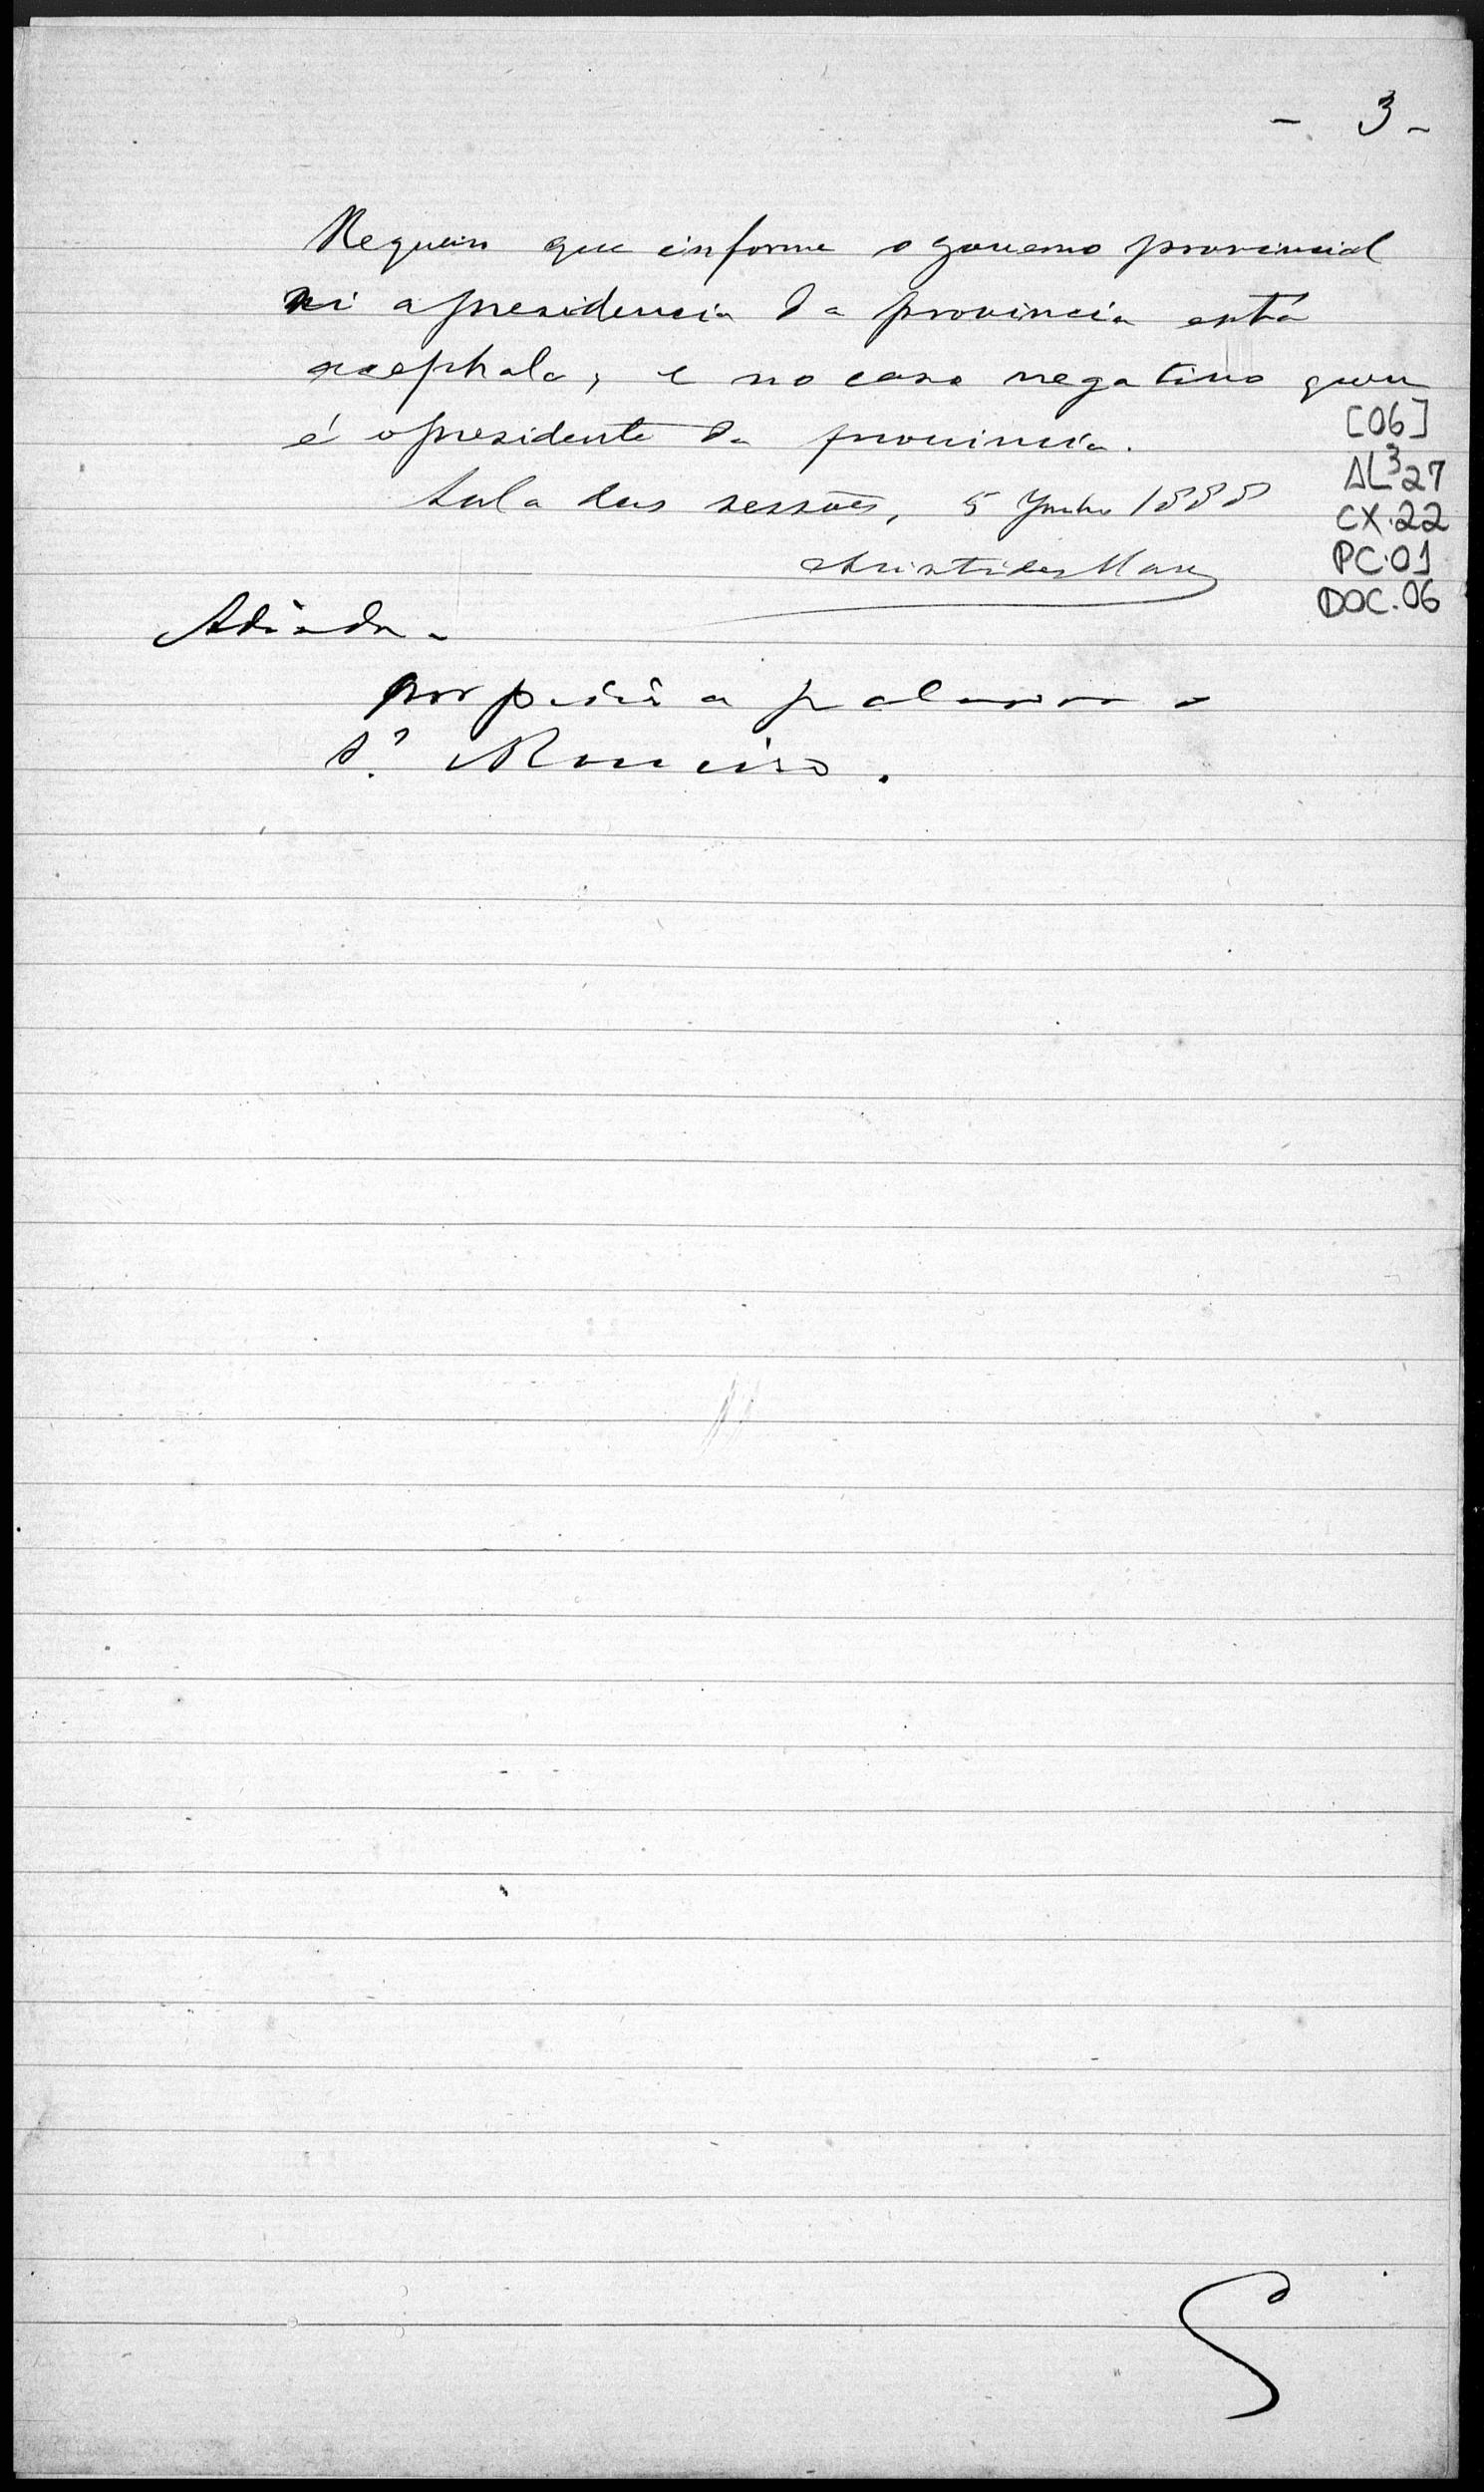 - 3 -
Requeiro que informe o governo provincial
si a presidencia da provincia está
acephala, e no caso negativo quem
é o presidente da provincia.
Sala das sessões, 5 Junho 1888
Aristides Maia
[06]
AL³27
CX.22
PC.01
DOC.06
Adiada.
por pedir a palavra o
Sr.